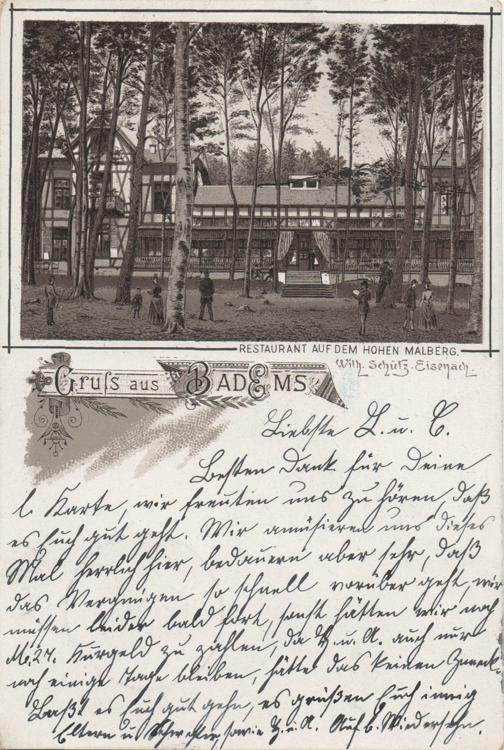 RESTAURANT AUF DEM HOHEN MALBERG.
Wilh. Schütz. Eisenach.
Gruſs aus BAD EMS
Liebste L. u. C.
Besten Dank für Deine
l. Karte, wir freuten uns zu hören, daß
es Euch gut geht. Wir amüsieren uns dieses
Mal herrlich hier, bedauern aber sehr, daß
das Vergnügen so schnell vorüber geht, wir
müssen leider bald fort, sonst hätten wir noch
M. 27. Kurgeld zu zahlen, da u. A. auch nur
noch einige Tage bleiben, hätte das keinen Zweck.
Laßt es Euch gut gehn, es grüßen Euch innig
Eltern u. sowie u. A. Auf b. Wiedersehn.